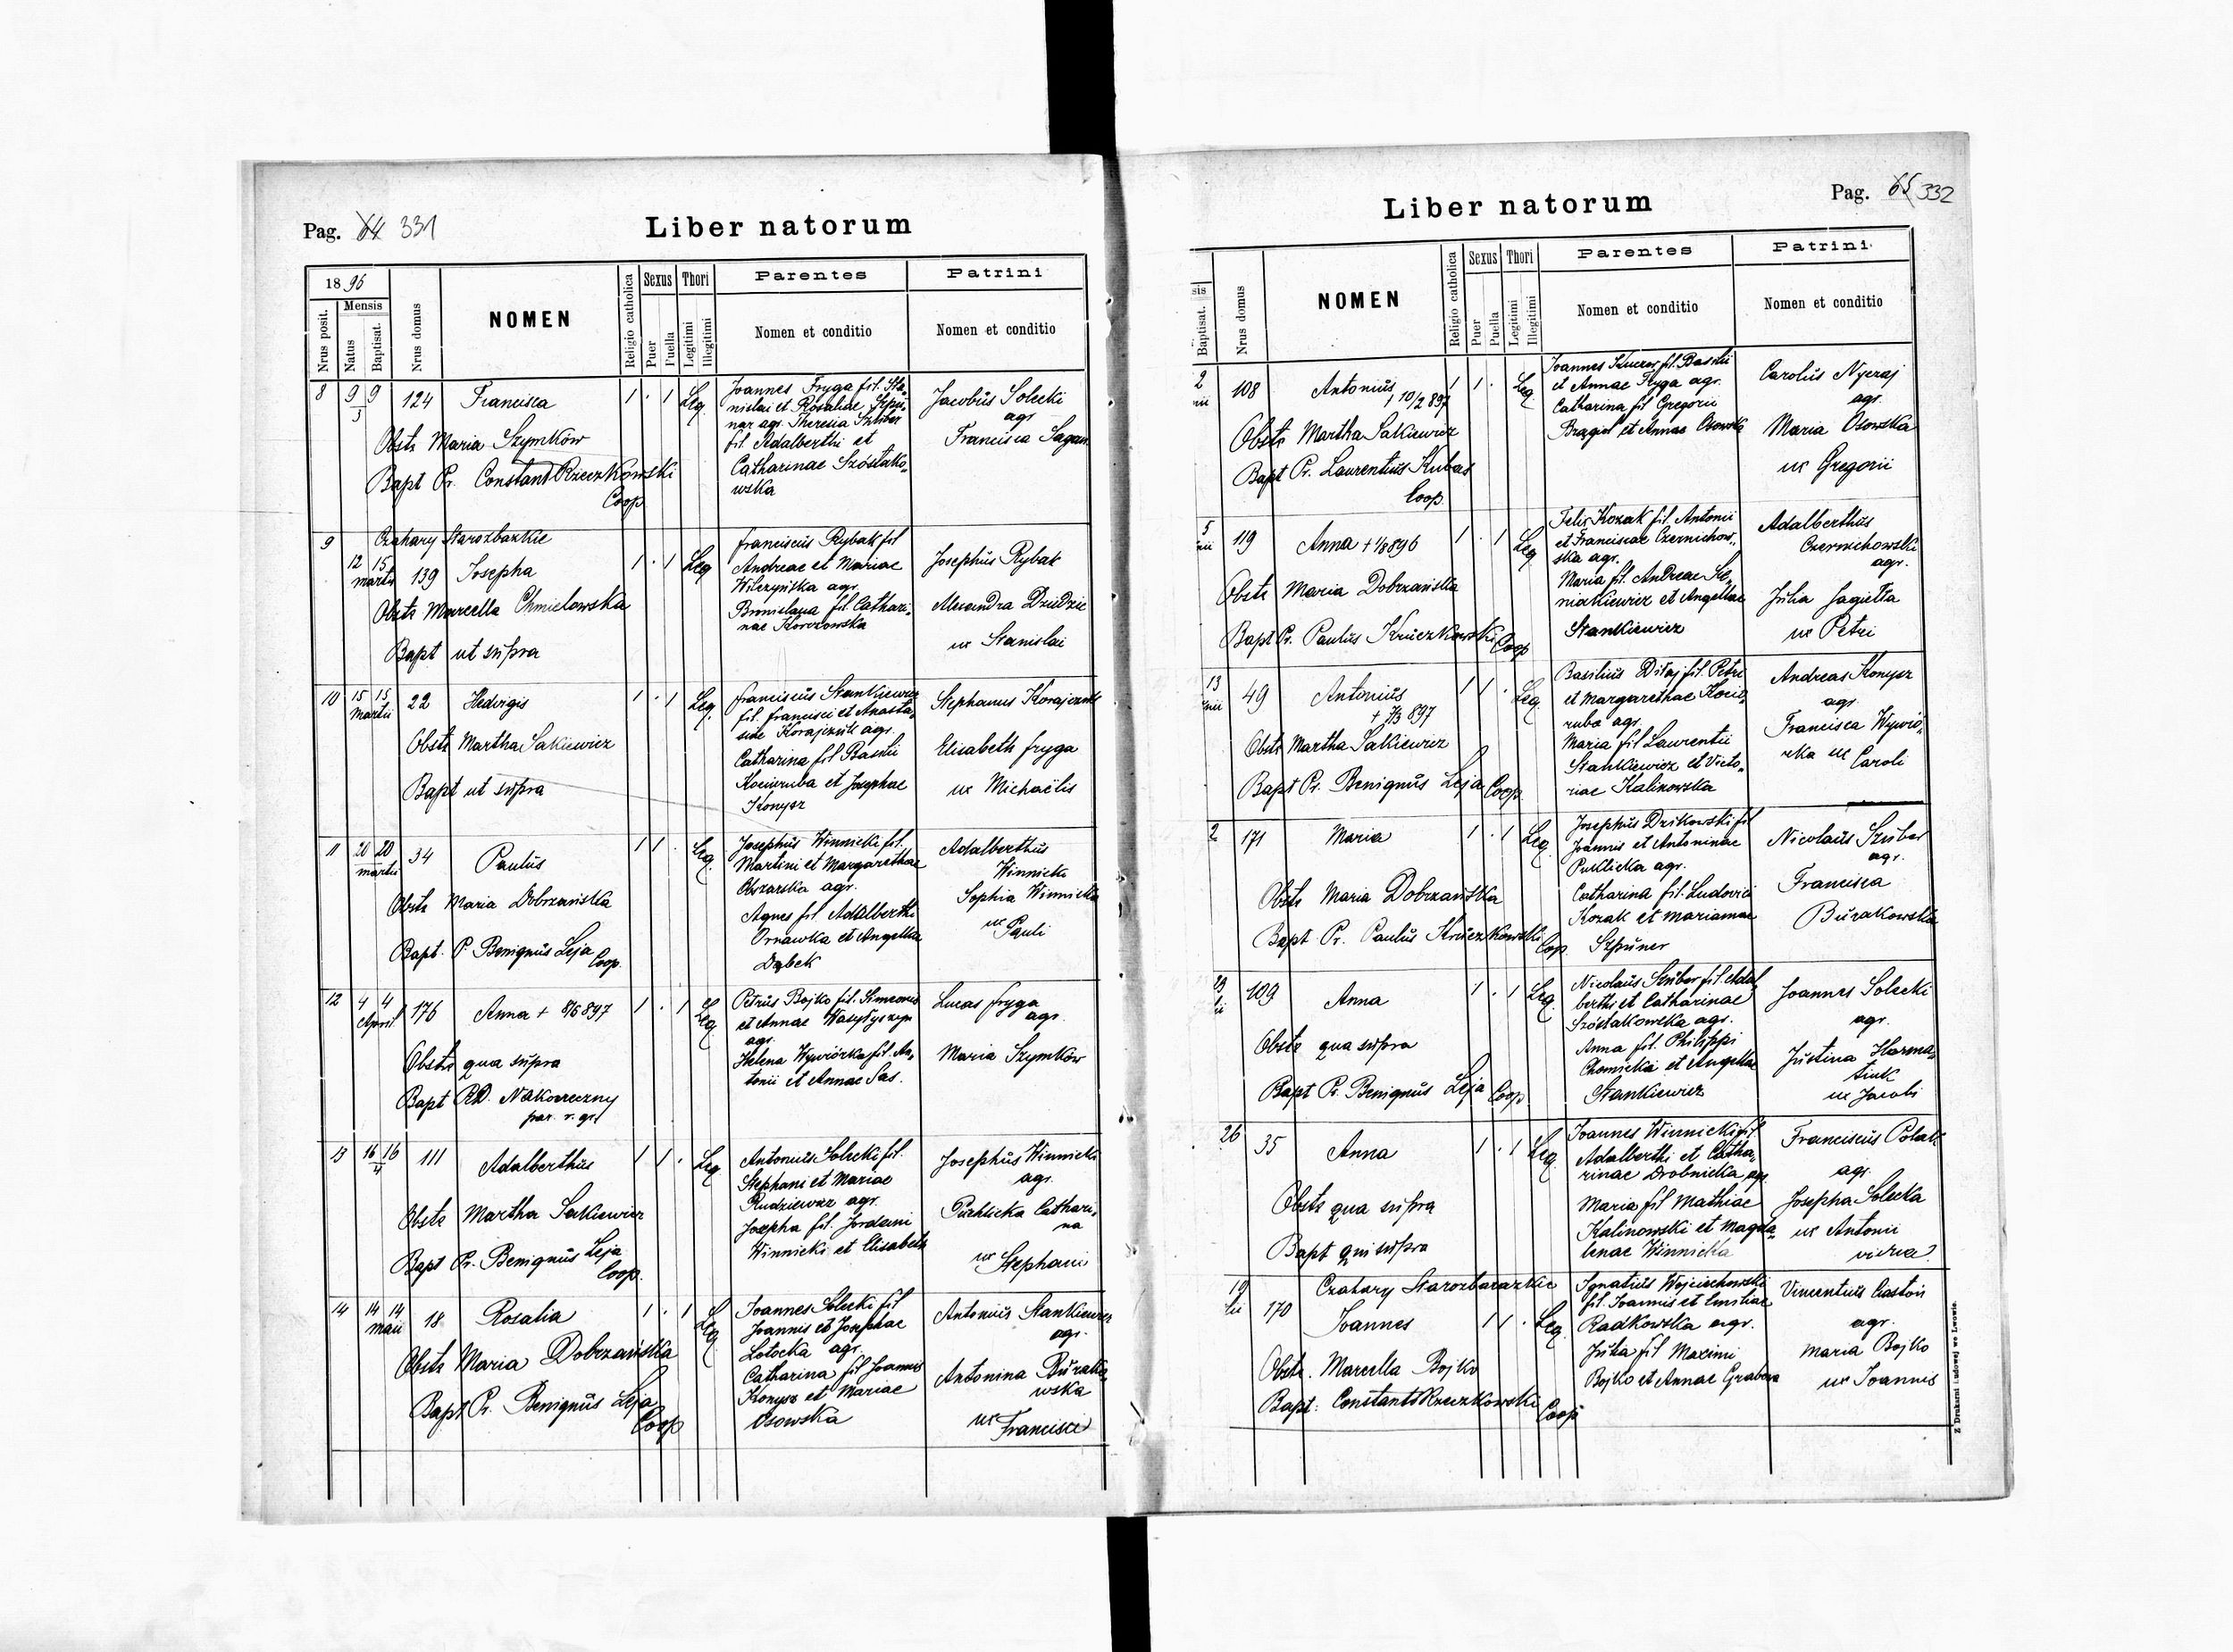 Pag. 64 331
Liber natorum
1896
Nrus posit.
Mensis
Natus
Baptisat.
Nrus domus
NOMEN
Religio catholica
Sexus
Puer
Puella
Thori
Legitimi
Illegitimi
Parentes
Nomen et conditio
Patrini
Nomen et conditio
8 9 9 124 Francisca 1 . 1 Leg.
3
Obstr Maria Szymków
Bapt Pr. Constant Rzeczkowski
Coop
Joannes Fryga fil. Sta-
nislai et Rosaliae Szpu-
nar agr. Theresia Szuber
fil. Adalberthi et
Catharinae Szóstako-
wska
Jacobus Solecki
agr
Francisca Sagan
9 Czahary Starozbazkie
12 15 139 Josepha 1 . 1 Leg
Martii
Obstr Marcella Chmielowska
Bapt ut supra
Franciscus Rybak fil
Andreae et Mariae
Wilczyńska agr.
Bronislava fil. Cathari-
nae Korczowska
Josephus Rybak
Alexandra Dziedzic
ux Stanislai
10 15 15 22 Hedvigis 1 . 1 Leg.
Martii
Obstr Martha Sakiewicz
Bapt ut supra
Franciscus Stankiewicz
fil. Francisci et Anasta-
siae Korajczuk agr.
Catharina fil Basilii
Kociuruba et Josephae
Konysz
Stephanus Korajczuk
Elisabeth Fryga
ux Michaëlis
11 20 20 34 Paulus 1 1 . Leg.
Martii
Obstr Maria Dobrzańska
Bapt. P. Benignus Leja
Coop.
Josephus Winnicki fil.
Martini et Margarethae
Obszarska agr.
Agnes fil Adalberthi
Ornawka et Angellae
Dąbek
Adalberthus
Winnicki
Sophia Winnicka
ux Pauli
12 4 4 176 Anna + 8/6 897 1 . 1 Leg
April
Obstr qua supra
Bapt RD. Nakoneczny
par. r. gr.
Petrus Bojko fil. Simeonis
et Annae Wasyłyszyn
agr.
Helena Wywiórka fil. An-
tonii et Annae Sas.
Lucas Fryga
agr.
Maria Szymków
13 16 16 111 Adalberthus 1 1 . Leg
4
Obstr Martha Sakiewicz
Bapt Pr. Benignus Leja
Coop.
Antonius Solecki fil.
Stephani et Mariae
Rudziewicz agr.
Josepha fil. Jordani
Winnicki et Elisabeth
Josephus Winnicki
agr.
Puchlicka Cathari-
na
ux Stephani
14 14 14 18 Rosalia 1 . 1 Leg
Maii
Obstr Maria Dobrzańska
Bapt Pr. Benignus Leja
Coop
Joannes Solecki fil
Joannis et Josephae
Łotocka agr.
Catharina fil Joannis
Konysz et Mariae
Osowska
Antonius Stankiewicz
agr.
Antonina Burako-
wska
ux Francisci
Liber natorum
Pag. 65 332
Baptisat.
Nrus domus
NOMEN
Religio catholica
Sexus
Puer
Puella
Thori
Legitimi
Illegitimi
Parentes
Nomen et conditio
Patrini
Nomen et conditio
2 108 Antonius 1 1 . Leg.
+ 10/2 897
Obstr Martha Sakiewicz
Bapt Pr. Laurentius Kubas
Coop.
Joannes Kuczer fil. Basilii
et Annae Fryga agr.
Catharina fil Gregorii
Brągiel et Annae Osowska
Carolus Nyczaj
agr.
Maria Osowska
ux Gregorii
5 119 Anna + 1/8 896 1 . 1 Leg
Obstr Maria Dobrzańska
Bapt Pr. Paulus Kruczkowski
Coop
Felix Kozak fil. Antonii
et Franciscae Czernichow-
ska agr.
Maria fil. Andreae Sie-
niatkiewicz et Angellae
Stankiewicz
Adalberthus
Czernichowski
agr.
Julia Jagiełła
ux Petri
13 49 Antonius 1 1 . Leg.
+ 7/3 897
Obstr Martha Sakiewicz
Bapt Pr. Benignus Leja
Coop.
Basilius Ditaj fil. Petri
et Margarethae Kociu-
ruba agr.
Maria fil Laurentii
Stankiewicz et Victo-
riae Kalinowska
Andreas Konysz
agr.
Francisca Wywió-
rka ux Caroli
2 171 Maria 1 . 1 Leg.
Obstr Maria Dobrzańska
Bapt Pr. Paulus Kruczkowski
Coop
Josephus Dzikowski fil
Joannis et Antoninae
Puklicka agr.
Catharina fil. Ludovici
Kozak et Mariannae
Szpuner
Nicolaus Szuber
agr.
Francisca
Burakowska
109 Anna 1 . 1 Leg.
Obstr qua supra
Bapt Pr. Benignus Leja
Coop
Nicolaus Szuber fil. Adal-
berthi et Catharinae
Szóstakowska agr.
Anna fil. Philippi
Chomicki et Angellae
Stankiewicz
Joannes Solecki
agr.
Justina Harma-
tiuk
ux Jacobi
26 35 Anna 1 . 1 Leg
Obstr qua supra
Bapt qui supra
Joannes Winnicki fil.
Adalberthi et Catha-
rinae Drobnicka agr.
Maria fil Mathiae
Kalinowski et Magda-
lenae Winnicka
Franciscus Polak
agr.
Josepha Solecka
ux Antonii
vidua
19 Czahary Starozbarazkie
170 Joannes 1 1 . Leg.
Obstr. Marcella Bojko
Bapt: Constant Rzeczkowski
Coop
Ignatius Wojciechowski
fil. Joannis et Emiliae
Radkowska agr.
Julia fil Maximi
Bojko et Annae Grabova
Vincentius Gastoń
agr.
Maria Bojko
ux Joannis
Z Drukarni Ludowej we Lwowie.